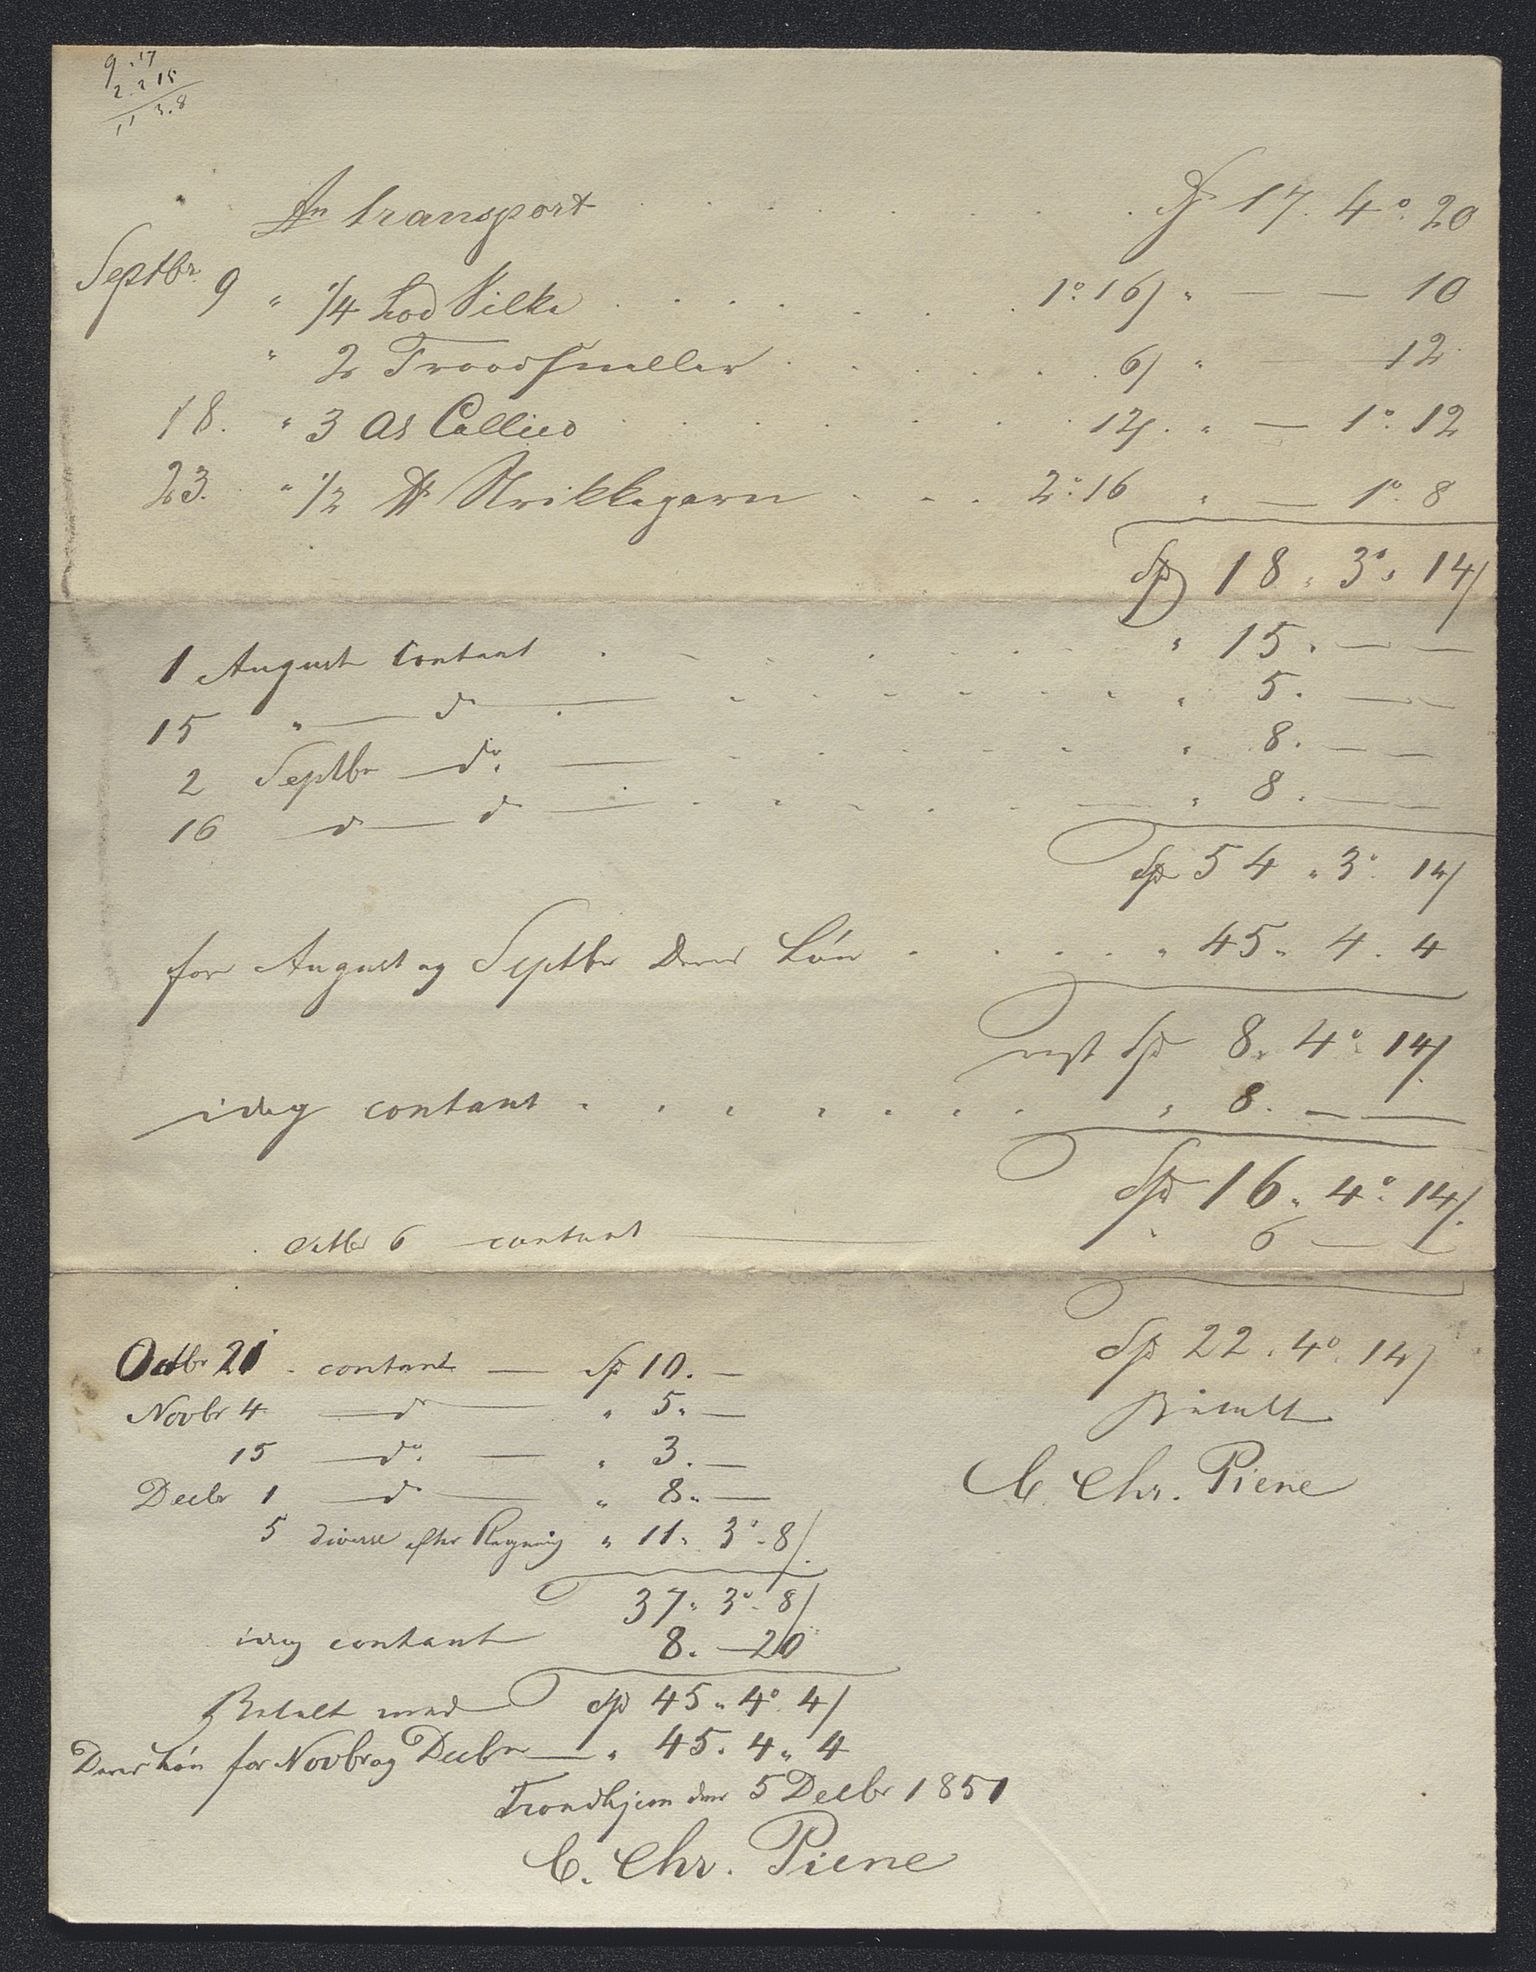 9 . 17
2 . 2 15
11 3 . 8
An transport . . . . . . . Sp 17. 4º. 20
Septbr. 9 " 1/4 Lod Silke . . . . . . 1º. 16/ " — — 10
" 2 Traadsneller . . . . . 6/ " 12
18. " 3 Al Callico . . . . . . 12/. " — 1º. 12
23. " 1/2 ℔ Strikkegarn . . . 2º. 16 " — 1º. 8
Sp 18 " 3º " 14/
1 August Contant . . . . . . " 15. — —
15 " — dº — . . . . . . " 5. — —
2 Septbr — dº. — . . . . . " 8. — —
16 — d — dº — . . . . . . " 8. — —
Sp 54 " 3º. 14/
for August og Septbr Deres Løn . . . . " 45 " 4. 4
rest Sp 8. 4º. 14/.
idag contant . . . . . . . " 8. — —
Spd 16. 4º. 14/.
Octbr 6 — contant — " 6 — —
Sp 22. 4º. 14/
Betalt
C. Chr. Piene
Octbr 21 . contant — Sp 10. —
Novbr 4 — d — " 5. —
15 — dº. — " 3. —
Decbr 1 — dº — " 8. —
5 diverse efter Regning " 11. 3º. 8/.
37. 3º. 8/
idag contant 8. — 20
Betalt med Spd 45. 4º. 4/
Deres Løn for Novbr og Decbr — " 45. 4. 4
Trondhjem den 5 Decbr 1851
C. Chr. Piene